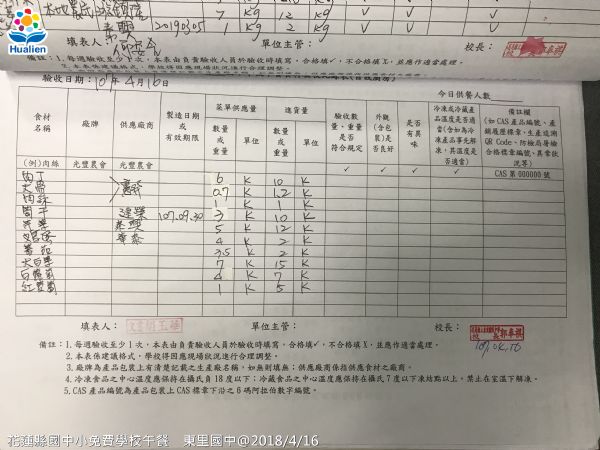 Hualien
本地農民
7 kg 12 kg V V V
20190305 1 kg 2 kg V V V
填表人：
單位主管：
校長：
驗收日期：107年4月16日
今日供餐人數
食材名稱
廠牌
供應廠商
製造日期或有效期限
菜單供應量
數量或重量
單位
進貨量
數量或重量
單位
驗收數量、重量是否符合規定
外觀(含包裝)是否良好
是否有異味
冷凍或冷藏產品溫度是否適當(含如為冷凍產品事先解凍，其溫度是否適當)
備註欄
(如CAS產品編號、產銷履歷標章、生產追溯QR Code、防檢局屠檢合格標章編號、異常狀況等)
(例)肉絲 光豐農會 光豐農會 ✓ ✓ ✓ ✓ CAS 第000000號
肉丁 6 K 10 K
大骨 0.7 K 1.2 K
肉絲 1 K 1 K
107.09.30 3 K 10 K
5 K 12 K
4 K 2 K
3.5 K 2 K
大白菜 7 K 15 K
白蘿蔔 4 K 7 K
紅蘿蔔 1 K 5 K
填表人：
單位主管：
校長：
107.04.16
備註：1.每週驗收至少1次，本表由負責驗收人員於驗收時填寫，合格填✓，不合格填X，並應作適當處理。
2.本表係建議格式，學校得因應現場狀況進行合理調整。
3.廠牌為產品包裝上有清楚記載之生產廠名稱，如無則填無；供應廠商係指供應食材之廠商。
4.冷凍食品之中心溫度應保持在攝氏負18度以下；冷藏食品之中心溫度應保持在攝氏7度以下凍結點以上，禁止在室溫下解凍。
5.CAS產品編號為產品包裝上CAS標章下沿之6碼阿拉伯數字編號。
花蓮縣國中小免費學校午餐 東里國中@2018/4/16